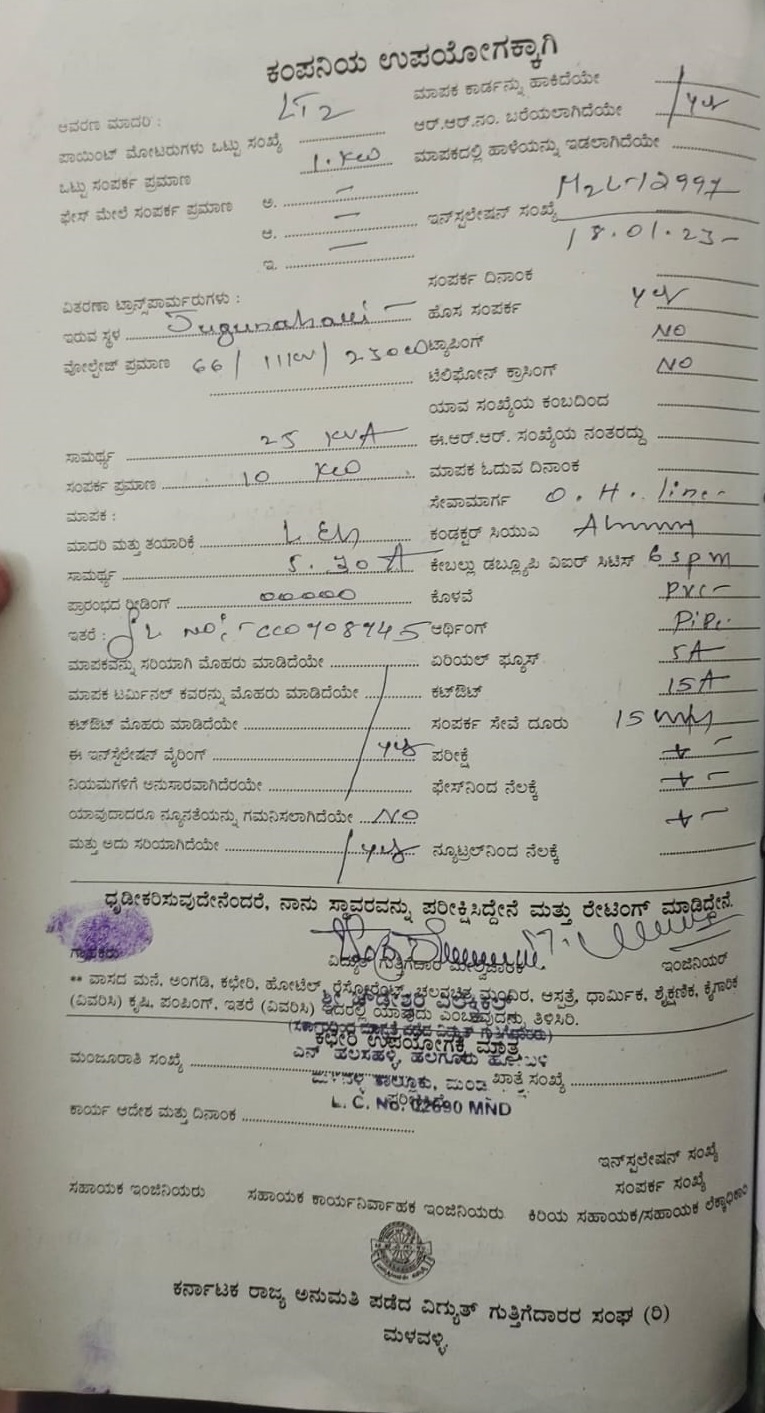 ಕಂಪನಿಯ ಉಪಯೋಗಕ್ಕಾಗಿ
ಆವರಣ ಮಾದರಿ : LT2 ಮಾಪಕ ಕಾರ್ಡನ್ನು ಹಾಕಿದೆಯೇ
ಪಾಯಿಂಟ್ ಮೋಟರುಗಳು ಒಟ್ಟು ಸಂಖ್ಯೆ ಆರ್.ಆರ್.ನಂ. ಬರೆಯಲಾಗಿದೆಯೇ yes
ಒಟ್ಟು ಸಂಪರ್ಕ ಪ್ರಮಾಣ 1. KW ಮಾಪಕದಲ್ಲಿ ಹಾಳೆಯನ್ನು ಇಡಲಾಗಿದೆಯೇ
ಫೇಸ್ ಮೇಲೆ ಸಂಪರ್ಕ ಪ್ರಮಾಣ ಅ. — M2L-12997
ಆ. — ಇನ್‌ಸ್ಪಲೇಷನ್ ಸಂಖ್ಯೆ 18.01.23-
ಇ. —
ಸಂಪರ್ಕ ದಿನಾಂಕ
ವಿತರಣಾ ಟ್ರಾನ್ಸ್‌ಪಾರ್ಮರುಗಳು : ಹೊಸ ಸಂಪರ್ಕ yes
ಇರುವ ಸ್ಥಳ ಟ್ಯಾಪಿಂಗ್ NO
ವೋಲ್ಟೇಜ್ ಪ್ರಮಾಣ 66/11KV/230 ಟೆಲಿಫೋನ್ ಕ್ರಾಸಿಂಗ್ NO
ಯಾವ ಸಂಖ್ಯೆಯ ಕಂಬದಿಂದ
ಸಾಮರ್ಥ್ಯ 25 KVA ಈ.ಆರ್.ಆರ್. ಸಂಖ್ಯೆಯ ನಂತರದ್ದು
ಸಂಪರ್ಕ ಪ್ರಮಾಣ 10 KW ಮಾಪಕ ಓದುವ ದಿನಾಂಕ
ಮಾಪಕ : ಸೇವಾಮಾರ್ಗ O. H. line-
ಮಾದರಿ ಮತ್ತು ತಯಾರಿಕೆ ಕಂಡಕ್ಟರ್ ಸಿಯುಎ
ಸಾಮರ್ಥ್ಯ 5. 30 A ಕೇಬಲ್ಲು ಡಬ್ಲ್ಯೂಪಿ ವಿಐರ್ ಸಿಟಿಸ್
ಪ್ರಾರಂಭದ ರೀಡಿಂಗ್ 00000 ಕೊಳವೆ PVC-
ಇತರೆ : SL NO: ಆರ್ಥಿಂಗ್ Pipe.
ಮಾಪಕವನ್ನು ಸರಿಯಾಗಿ ಮೊಹರು ಮಾಡಿದೆಯೇ ಏರಿಯಲ್ ಫ್ಯೂಸ್ 5A
ಮಾಪಕ ಟರ್ಮಿನಲ್ ಕವರನ್ನು ಮೊಹರು ಮಾಡಿದೆಯೇ ಕಟ್‌ಔಟ್ 15A
ಕಟ್‌ಔಟ್ ಮೊಹರು ಮಾಡಿದೆಯೇ ಸಂಪರ್ಕ ಸೇವೆ ದೂರು 15
ಈ ಇನ್‌ಸ್ಟಲೇಷನ್ ವೈರಿಂಗ್ yes ಪರೀಕ್ಷೆ + -
ನಿಯಮಗಳಿಗೆ ಅನುಸಾರವಾಗಿದೆರಯೇ ಫೇಸ್‌ನಿಂದ ನೆಲಕ್ಕೆ + -
ಯಾವುದಾದರೂ ನ್ಯೂನತೆಯನ್ನು ಗಮನಿಸಲಾಗಿದೆಯೇ NO + -
ಮತ್ತು ಅದು ಸರಿಯಾಗಿದೆಯೇ yes ನ್ಯೂಟ್ರಲ್‌ನಿಂದ ನೆಲಕ್ಕೆ
ಧೃಡೀಕರಿಸುವುದೇನೆಂದರೆ, ನಾನು ಸ್ಥಾವರವನ್ನು ಪರೀಕ್ಷಿಸಿದ್ದೇನೆ ಮತ್ತು ರೇಟಿಂಗ್ ಮಾಡಿದ್ದೇನೆ.
ಗ್ರಾಹಕರು ವಿದ್ಯುತ್ ಗುತ್ತಿಗೆದಾರ ಮೇಲ್ವಿಚಾರಕ ಇಂಜಿನಿಯರ್
** ವಾಸದ ಮನೆ, ಅಂಗಡಿ, ಕಛೇರಿ, ಹೋಟೆಲ್, ರೆಸ್ಟೋರೆಂಟ್, ಚಲನಚಿತ್ರ ಮಂದಿರ, ಆಸ್ಪತ್ರೆ, ಧಾರ್ಮಿಕ, ಶೈಕ್ಷಣಿಕ, ಕೈಗಾರಿಕ
(ವಿವರಿಸಿ) ಕೃಷಿ, ಪಂಪಿಂಗ್, ಇತರೆ (ವಿವರಿಸಿ) ಇದರಲ್ಲಿ ಯಾವುದು ಎಂಬುವುದನ್ನು ತಿಳಿಸಿರಿ.
ಕಛೇರಿ ಉಪಯೋಗಕ್ಕೆ ಮಾತ್ರ
ಎನ್ ಹಲಸಹಳ್ಳಿ, ಹಲಗೂರು ಹೋಬಳಿ
ಮಂಜೂರಾತಿ ಸಂಖ್ಯೆ ತಾಲ್ಲೂಕು, ಖಾತೆ ಸಂಖ್ಯೆ
L. C. No. 02690 MND
ಕಾರ್ಯ ಆದೇಶ ಮತ್ತು ದಿನಾಂಕ
ಇನ್‌ಸ್ಪಲೇಷನ್ ಸಂಖ್ಯೆ
ಸಂಪರ್ಕ ಸಂಖ್ಯೆ
ಸಹಾಯಕ ಇಂಜಿನಿಯರು ಸಹಾಯಕ ಕಾರ್ಯನಿರ್ವಾಹಕ ಇಂಜಿನಿಯರು ಕಿರಿಯ ಸಹಾಯಕ/ಸಹಾಯಕ ಲೆಕ್ಕಾಧಿಕಾರಿ
ಕರ್ನಾಟಕ ರಾಜ್ಯ ಅನುಮತಿ ಪಡೆದ ವಿದ್ಯುತ್ ಗುತ್ತಿಗೆದಾರರ ಸಂಘ (ರಿ)
ಮಳವಳ್ಳಿ